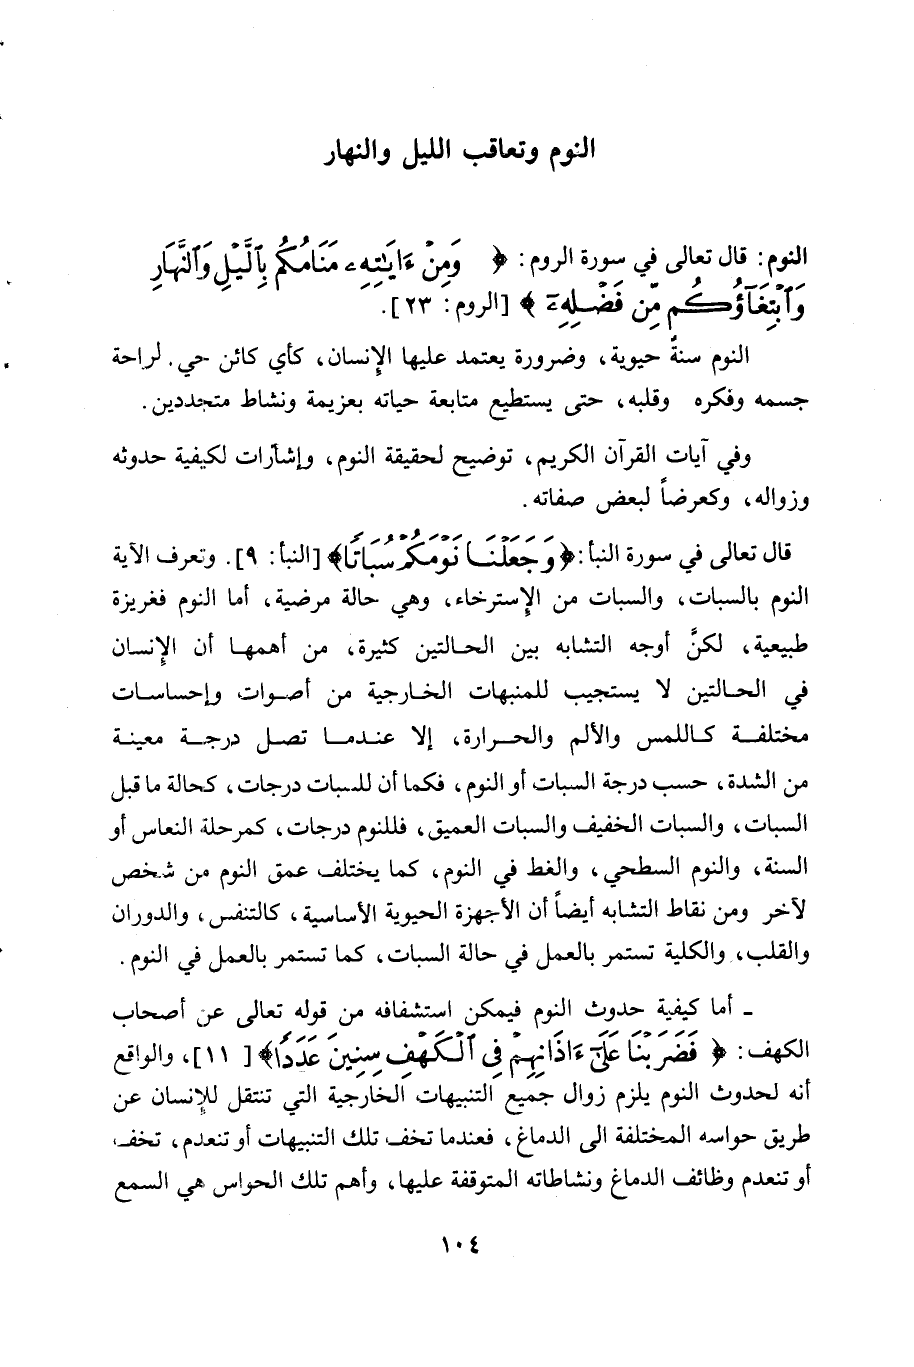 النوم وتعاقب الليل والنهار
النوم: قال تعالى في سورة الروم: ﴿ وَمِنْ ءَايَٰتِهِۦ مَنَامُكُم بِٱلَّيْلِ وَٱلنَّهَارِ
وَٱبْتِغَآؤُكُم مِّن فَضْلِهِۦٓ ﴾ [الروم: ٢٣].
النوم سنةٌ حيوية، وضرورة يعتمد عليها الإنسان، كأي كائن حي. لراحة
جسمه وفكره وقلبه، حتى يستطيع متابعة حياته بعزيمة ونشاط متجددين.
وفي آيات القرآن الكريم، توضيح لحقيقة النوم، وإشارات لكيفية حدوثه
وزواله، وكعرضاً لبعض صفاته.
قال تعالى في سورة النبأ: ﴿وَجَعَلْنَا نَوْمَكُمْ سُبَاتًا﴾ [النبأ: ٩]. وتعرف الآية
النوم بالسبات، والسبات من الإسترخاء، وهي حالة مرضية، أما النوم فغريزة
طبيعية، لكنَّ أوجه التشابه بين الحالتين كثيرة، من أهمها أن الإنسان
في الحالتين لا يستجيب للمنبهات الخارجية من أصوات وإحساسات
مختلفة كاللمس والألم والحرارة، إلا عندما تصل درجة معينة
من الشدة، حسب درجة السبات أو النوم، فكما أن للسبات درجات، كحالة ما قبل
السبات، والسبات الخفيف والسبات العميق، فللنوم درجات، كمرحلة النعاس أو
السنة، والنوم السطحي، والغط في النوم، كما يختلف عمق النوم من شخص
لآخر ومن نقاط التشابه أيضاً أن الأجهزة الحيوية الأساسية، كالتنفس، والدوران
والقلب، والكلية تستمر بالعمل في حالة السبات، كما تستمر بالعمل في النوم.
ـ أما كيفية حدوث النوم فيمكن استشفافه من قوله تعالى عن أصحاب
الكهف: ﴿ فَضَرَبْنَا عَلَىٰٓ ءَاذَانِهِمْ فِى ٱلْكَهْفِ سِنِينَ عَدَدًا﴾ [ ١١]، والواقع
أنه لحدوث النوم يلزم زوال جميع التنبيهات الخارجية التي تنتقل للإنسان عن
طريق حواسه المختلفة الى الدماغ، فعندما تخف تلك التنبيهات أو تنعدم، تخف
أو تنعدم وظائف الدماغ ونشاطاته المتوقفة عليها، وأهم تلك الحواس هي السمع
١٠٤